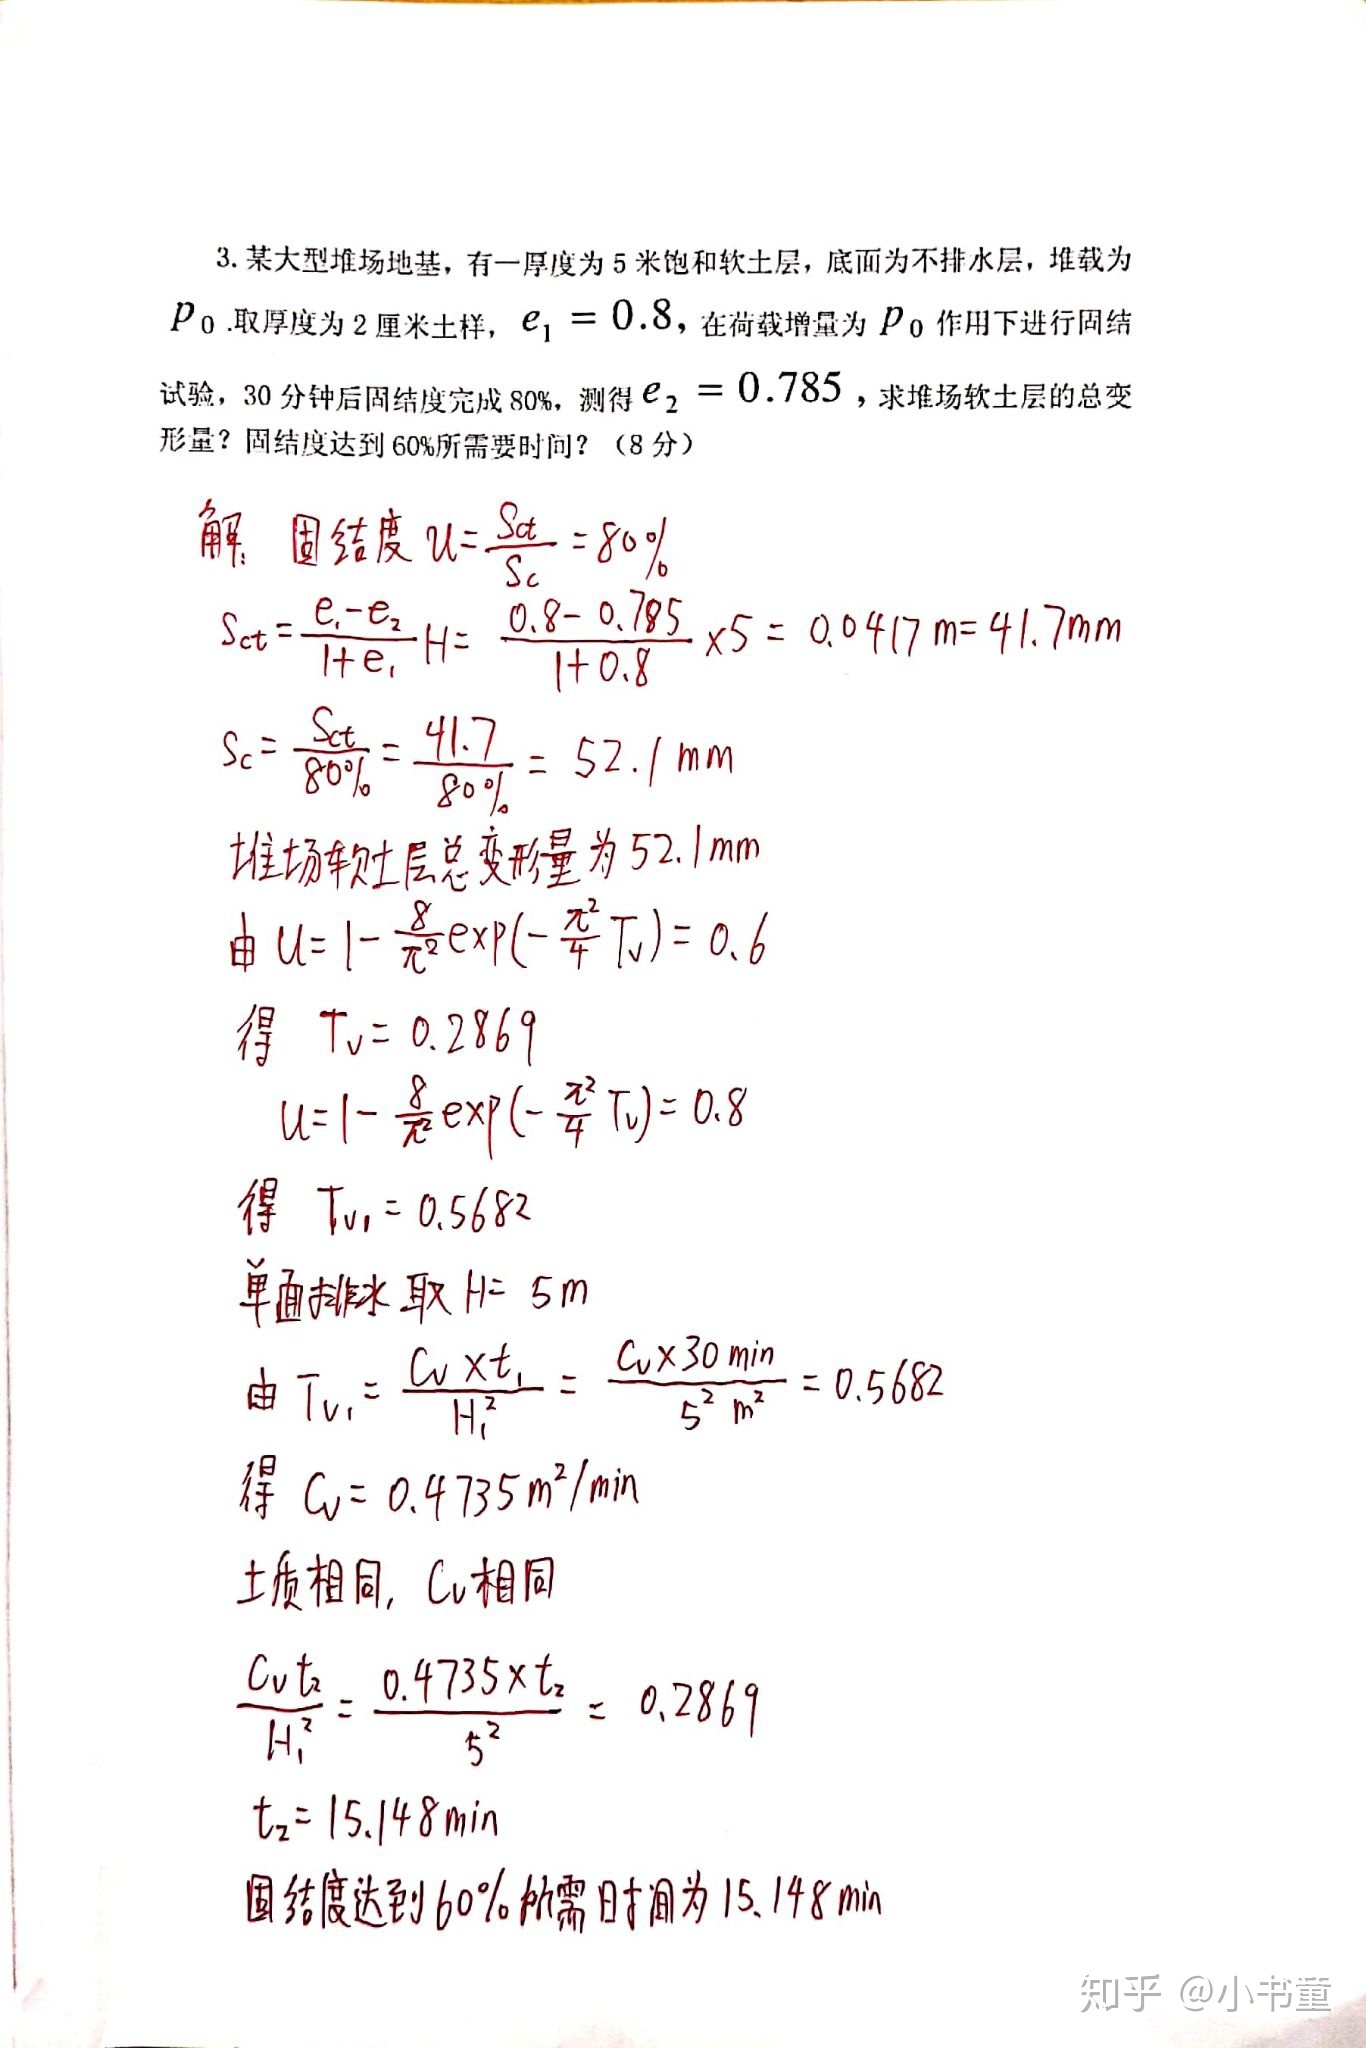 3. 某大型堆场地基，有一厚度为 5 米饱和软土层，底面为不排水层，堆载为
P₀ .取厚度为 2 厘米土样， e₁ = 0.8, 在荷载增量为 P₀ 作用下进行固结
试验，30 分钟后固结度完成 80%，测得 e₂ = 0.785 ，求堆场软土层的总变
形量？固结度达到 60%所需要时间？（8 分）
解: 固结度 U = Sct/Sc = 80%
Sct = (e₁-e₂)/(1+e₁) H = (0.8-0.785)/(1+0.8) ×5 = 0.0417m = 41.7mm
Sc = Sct/80% = 41.7/80% = 52.1mm
堆场软土层总变形量为52.1mm
由 U = 1 - 8/π² exp(-π²/4 Tv) = 0.6
得 Tv = 0.2869
U = 1 - 8/π² exp(-π²/4 Tv) = 0.8
得 Tv₁ = 0.5682
单面排水 取 H = 5m
由 Tv₁ = (Cv×t₁)/H₁² = (Cv×30min)/(5² m²) = 0.5682
得 Cv = 0.4735m²/min
土质相同, Cv相同
Cvt₂/H₁² = (0.4735×t₂)/5² = 0.2869
t₂ = 15.148min
固结度达到60%所需时间为15.148min
知乎 @小书童